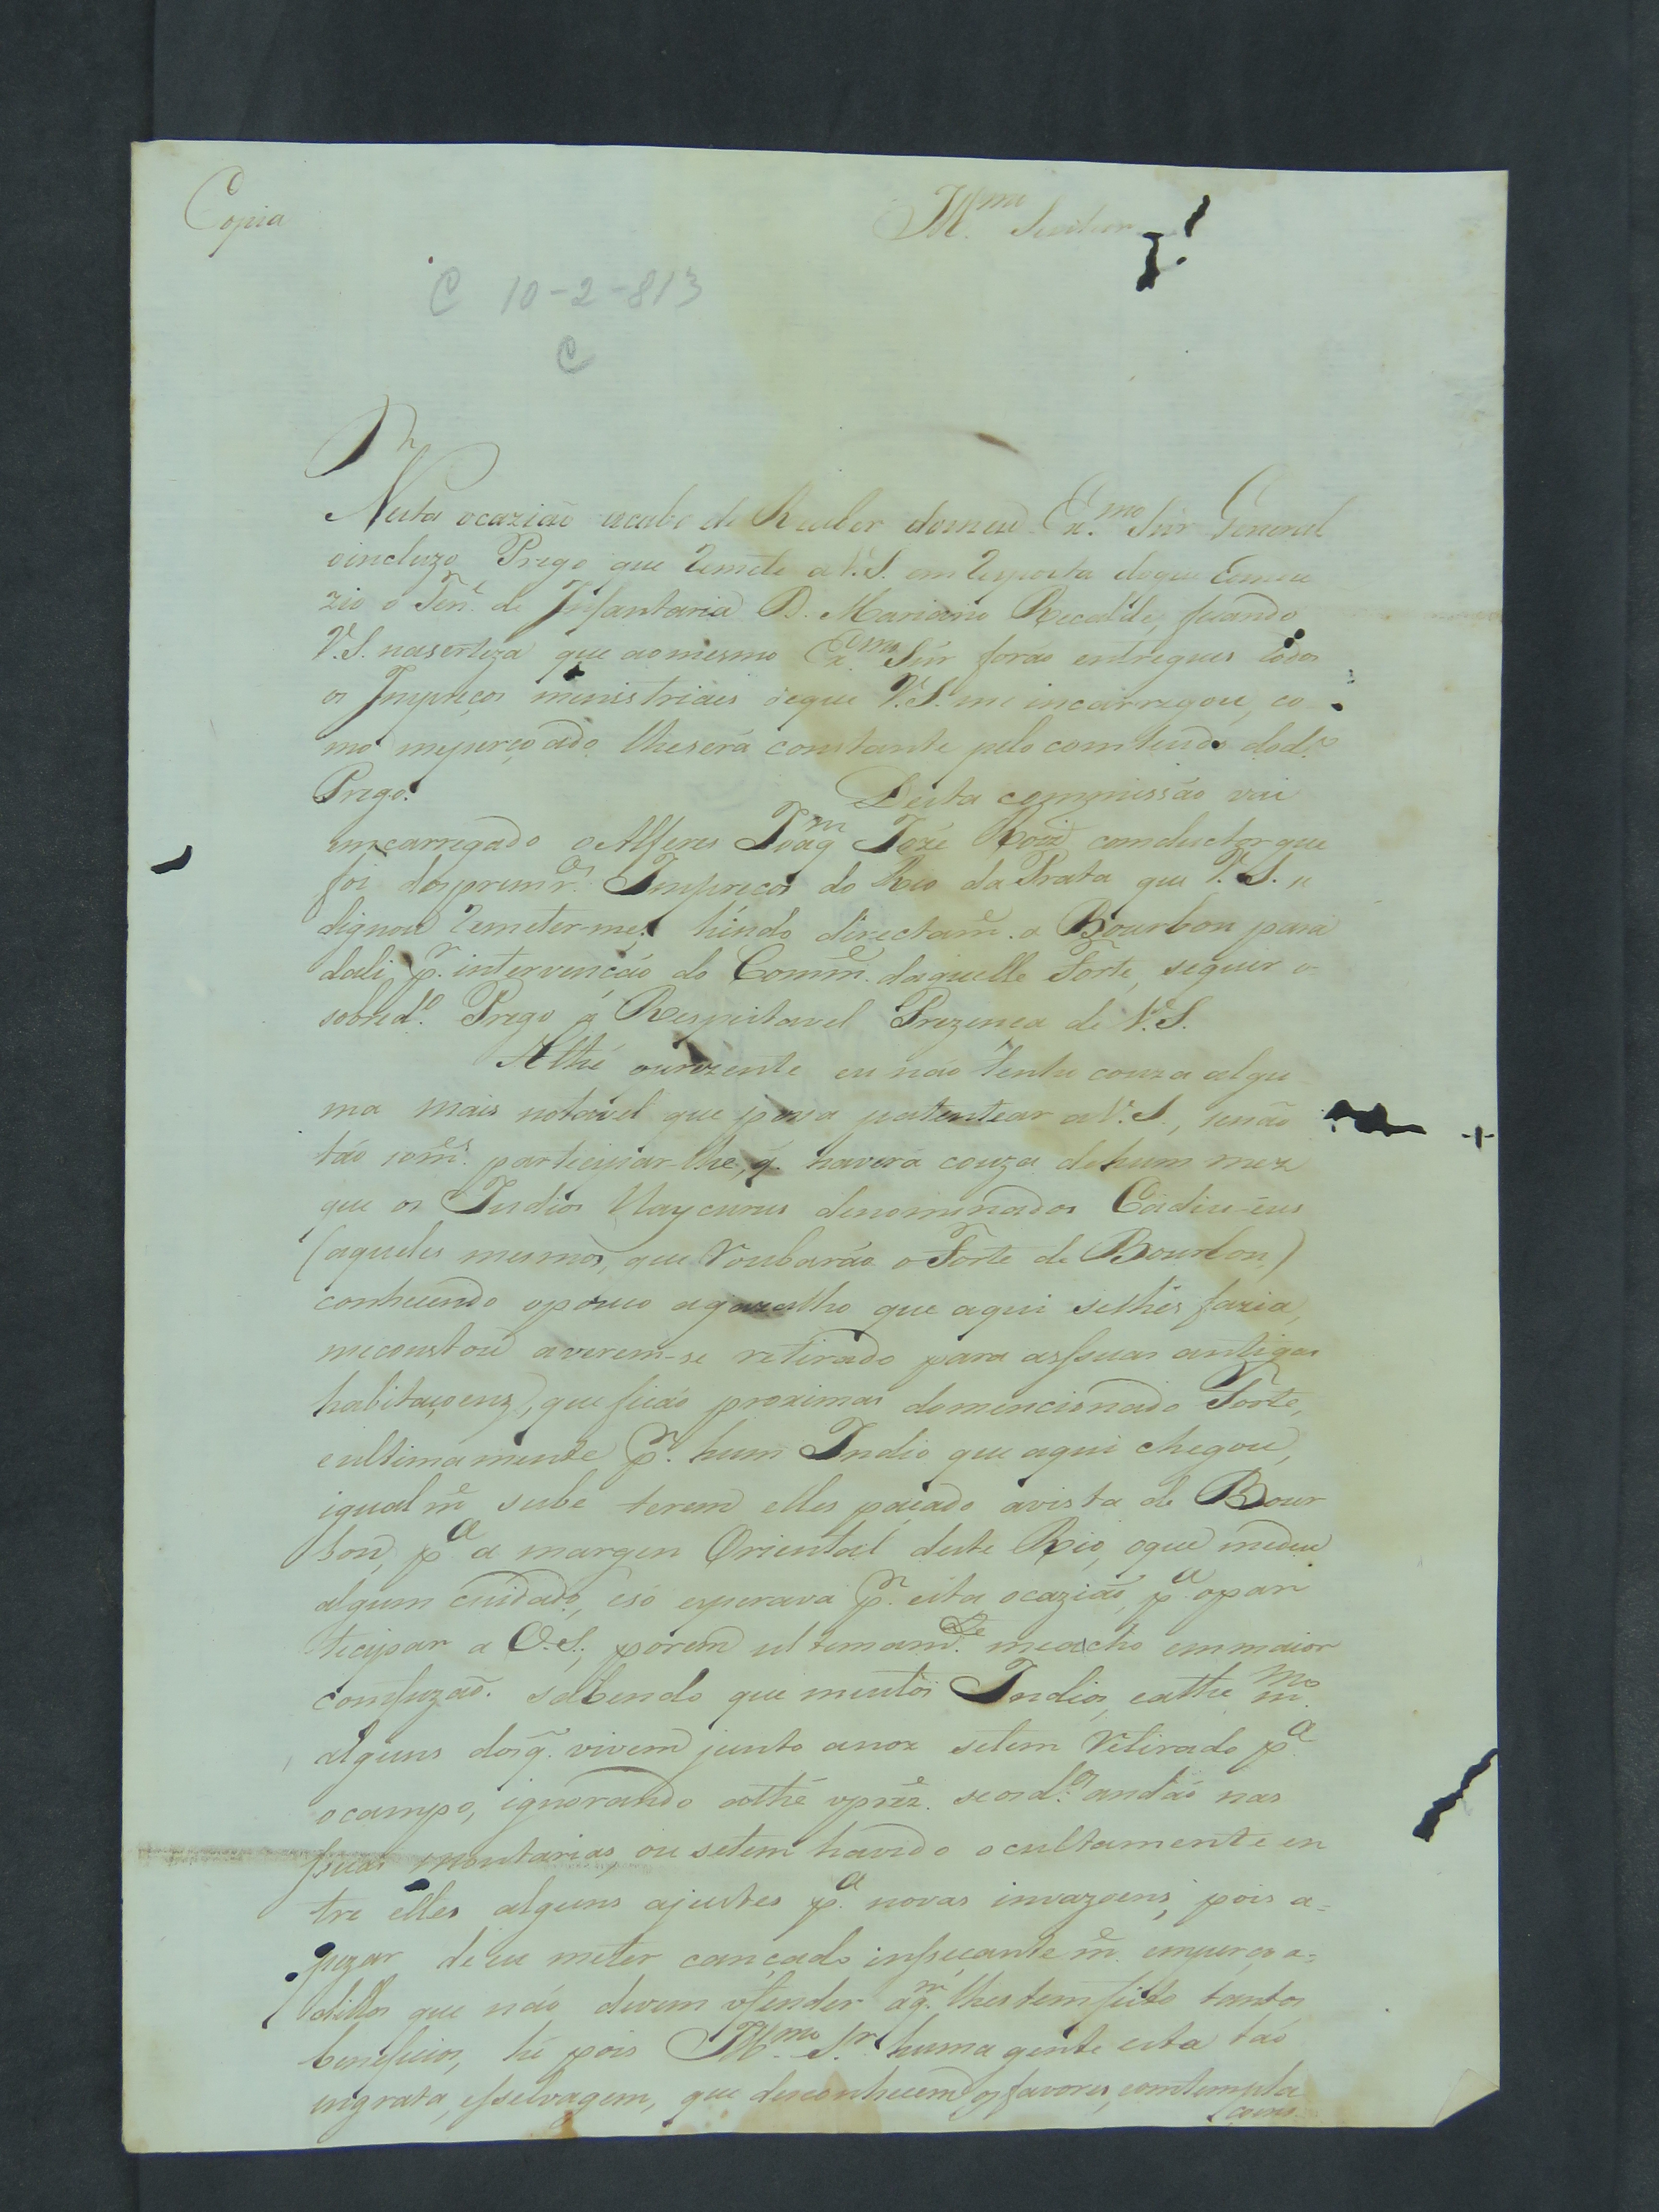 Copia
Ill.mo Senhor
C 10-2-813
C
Nesta ocazião acabo de Receber domeu Ex.mo Snr General
oincluzo Prego que Remeto a V.S. em Resposta doque Condu
zio o Ten.e de Infantaria D. Mariano Recalde, ficando
V.S. naserteza que aomesmo Ex.mo Snr forão entregues todos
os Impreços ministriais deque V.S. me incarregou, co
mo meperçoado lheserá constante pelo comteudo dod.o
Prego. Desta commissão vai
emcarregado o Alferes Joaq.m Jozé Roiz conductor que
foi dosprimr.os Impreços do Rio da Prata que V.S. se
dignou Remeter-me, hindo directam.e a Bourbon para
dali, p.r intervenção do Comm.e daquelle Forte, seguir o
sobred.o Prego á Respeitavel Prezenca de V.S.
Athé oprezente eu não tenho couza algu
ma mais notavel que possa patentear a V.S., senão
tão som.e participar-lhe, q. havera couza dehum mez
que os Indios Uaycurus denominados Cadiu-éus
(aqueles mesmos, que Roubarão o Forte de Bourbon)
conhecendo opouco agazalho que aqui selhes fazia,
meconstou averem-se retirado para assuas antigas
habitaçoens, que ficão proximas domencionado Forte,
eultimamente p.r hum Indio que aqui chegou,
igualm.e sube terem elles paçado avista de Bour
bon, p.a a margen Oriental deste Rio, oque medeu
algum cuidado, esó esperava p.r esta ocazião, p.a opar
ticipar a V.S., porem ultimam.te meacho emmaior
comfuzaõ. sabendo que muitos Indios, eathe m.mo
alguns dosq. vivem junto anoz setem Retirado p.a
ocampo, ignorando athé oprez.e seosd.os andão nas
suas montarias, ou setem havido ocultamente en
tre elles alguns ajustes p.a novas invazoens, pois a=
pezar deeu meter cançado inseçantem.e empersoa=
dillos que não devem ofender aq.m lhestemfeito tantos
beneficios, hé pois Ill.mo Sr. huma gente esta tão
ingrata, esselvagem, que desconhecem osfavores, comtempla
coens